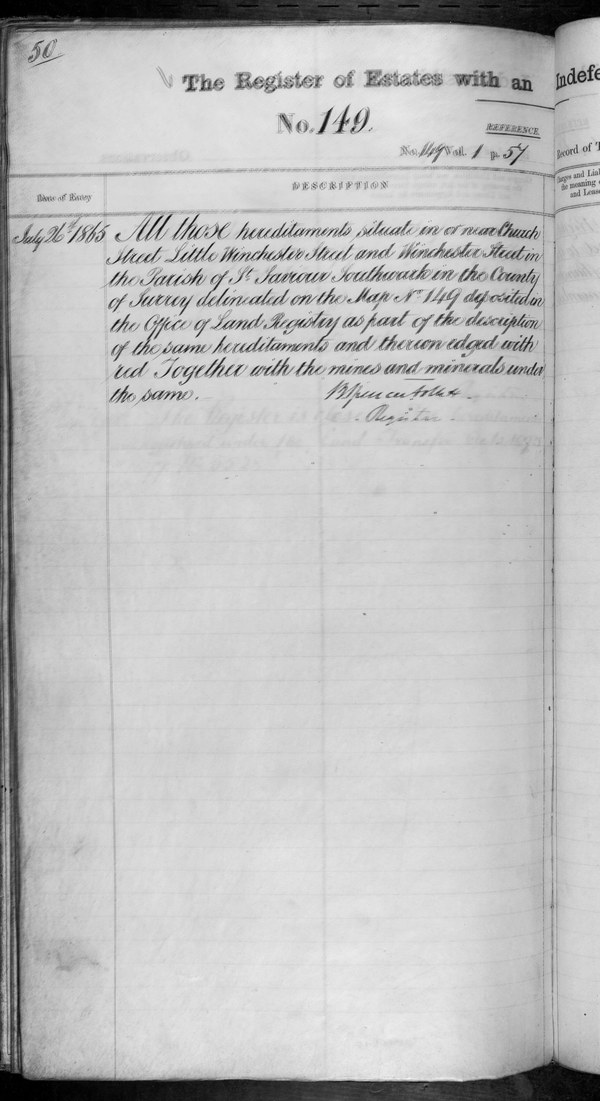 50
The Register of Estates with an
No. 149.
REFERENCE.
No. 149 Vol. 1 p. 57
Date of Entry
DESCRIPTION
July 26th 1865 All those hereditaments situate in or near Church
Street Little Winchester Street and Winchester Street in
the Parish of St. Saviour Southwark in the County
of Surrey delineated on the Map No. 149 deposited in
the Office of Land Registry as part of the description
of the same hereditaments and thereon edged with
red Together with the mines and minerals under
the same.
Registrar
Indefe
Record of T
Charges and Liab
the meaning
and Lease